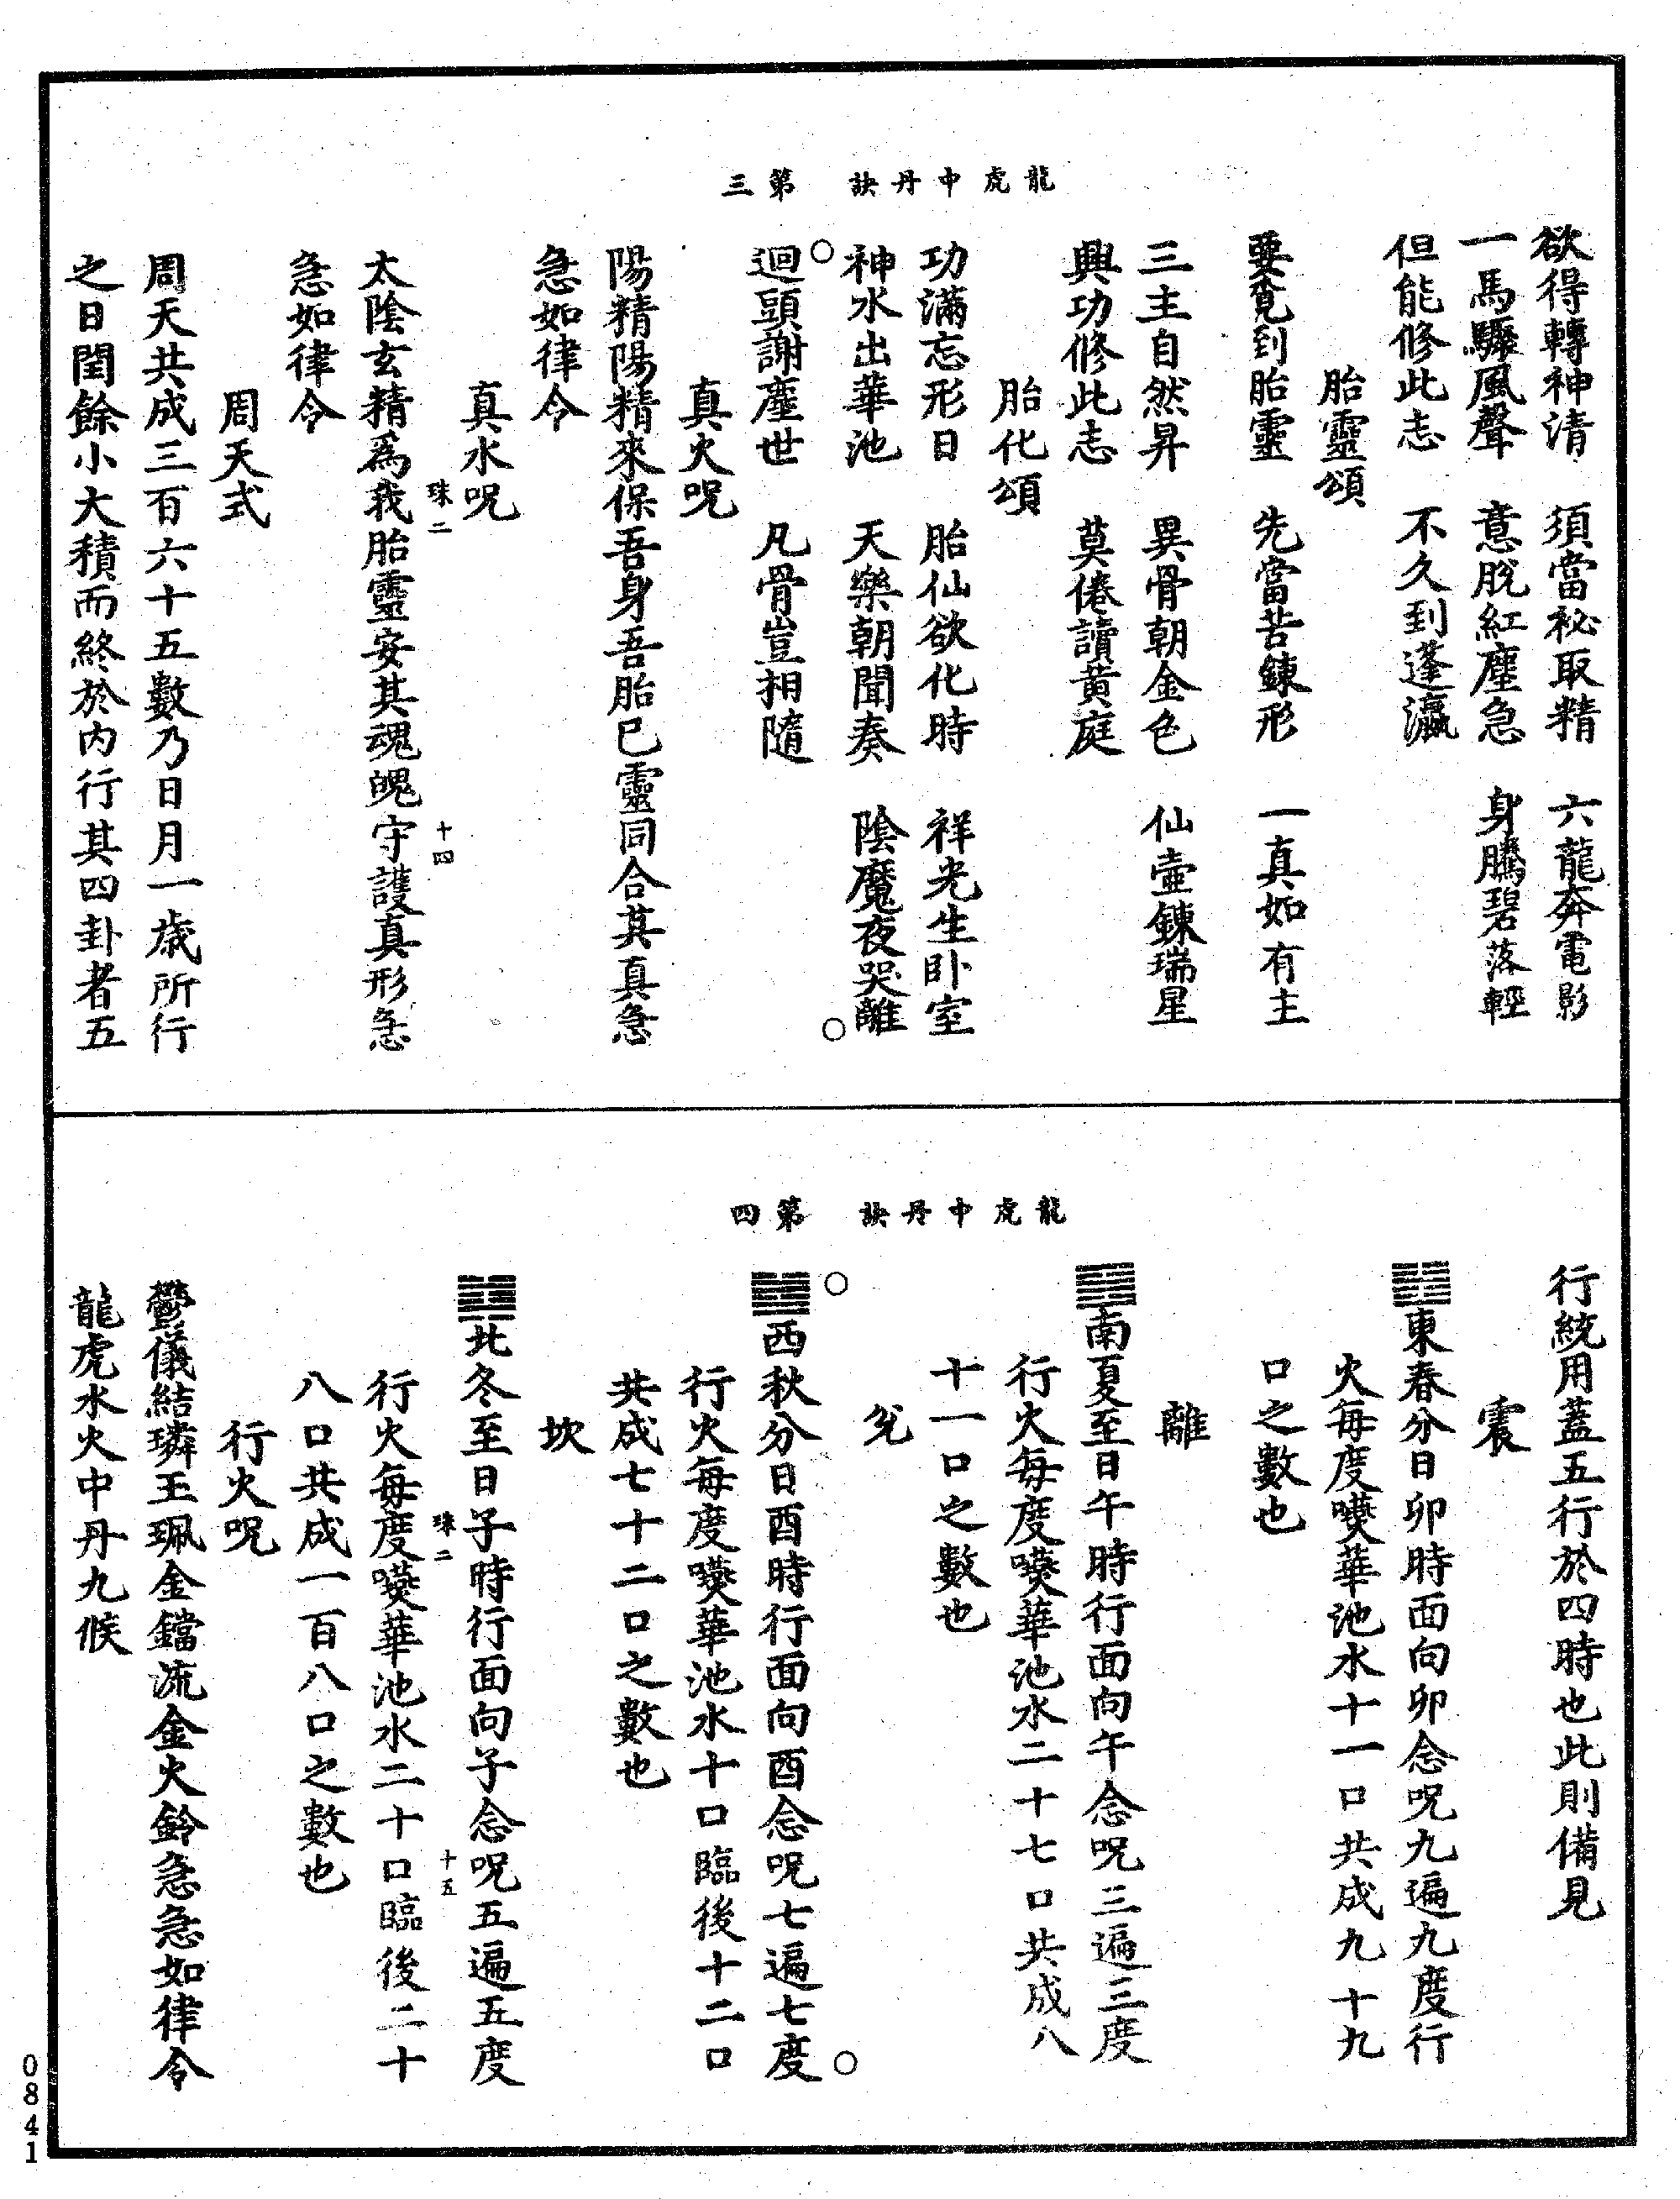 龍虎中丹訣　第三
欲得轉神清　須當祕取精　六龍奔電影
一馬驟風聲　意脫紅塵急　身騰碧落輕
但能修此志　不久到蓬瀛
胎靈頌
要覓到胎靈　先當苦鍊形　一真如有主
三主自然昇　異骨朝金色　仙壺鍊瑞星
興功修此志　莫倦讀黃庭
胎化頌
功滿忘形日　胎仙欲化時　祥光生卧室
神水出華池　天樂朝聞奏　陰魔夜哭離
迴頭謝塵世　凡骨豈相隨
真火呪
陽精陽精來保吾身吾胎已靈同合其真急
急如律令
真水呪
珠二　十四
太陰玄精為我胎靈安其魂魄守護真形急
急如律令
周天式
周天共成三百六十五數乃日月一歲所行
之日閏餘小大積而終於内行其四卦者五
龍虎中丹訣　第四
行統用蓋五行於四時也此則備見
震
䷲東春分日卯時面向卯念呪九遍九度行
火每度噀華池水十一口共成九十九
口之數也
離
䷝南夏至日午時行面向午念呪三遍三度
行火每度噀華池水二十七口共成八
十一口之數也
兌
䷹西秋分日酉時行面向酉念呪七遍七度
行火每度噀華池水十口臨後十二口
共成七十二口之數也
坎
䷜北冬至日子時行面向子念呪五遍五度
珠二　十五
行火每度噀華池水二十口臨後二十
八口共成一百八口之數也
行火呪
鬱儀結璘玉珮金鐺流金火鈴急急如律令
龍虎水火中丹九候
0841